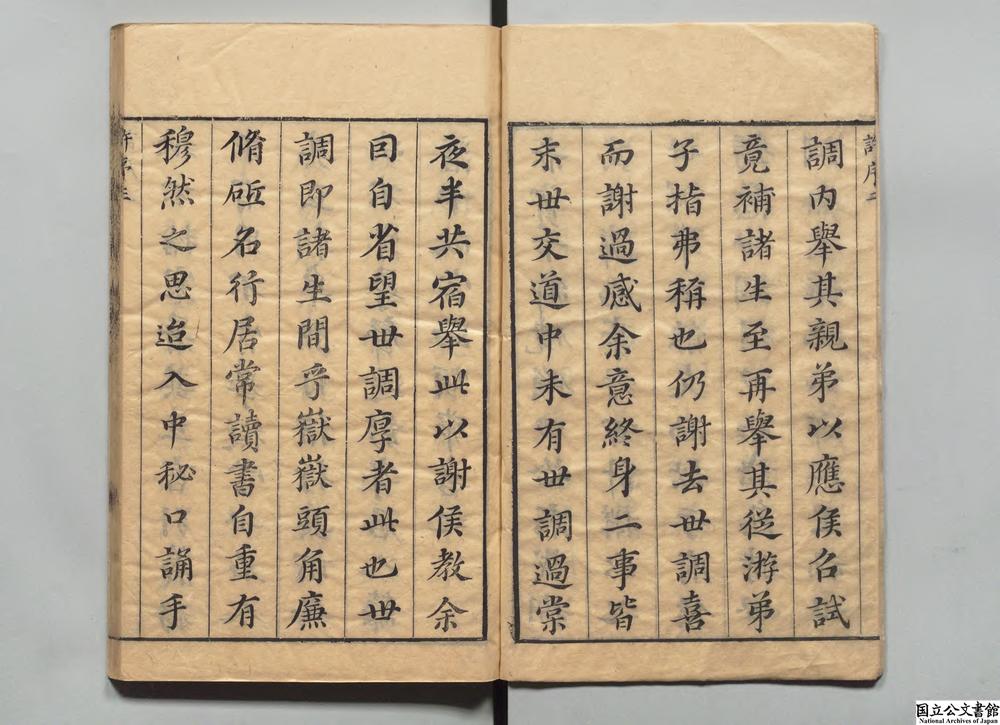 調内舉其親弟以應侯召試
竟補諸生至再舉其從游弟
子指弗稱也仍謝去丗調喜
而謝過感余意終身二事皆
末丗交道中未有丗調過棠
夜半共宿舉此以謝侯教余
囙自省望丗調厚者此也丗
調即諸生間乎嶽嶽頭角廉
脩砥名行居常讀書自重有
穆然之思迨入中秘口誦手
国立公文書館
National Archives of Japan